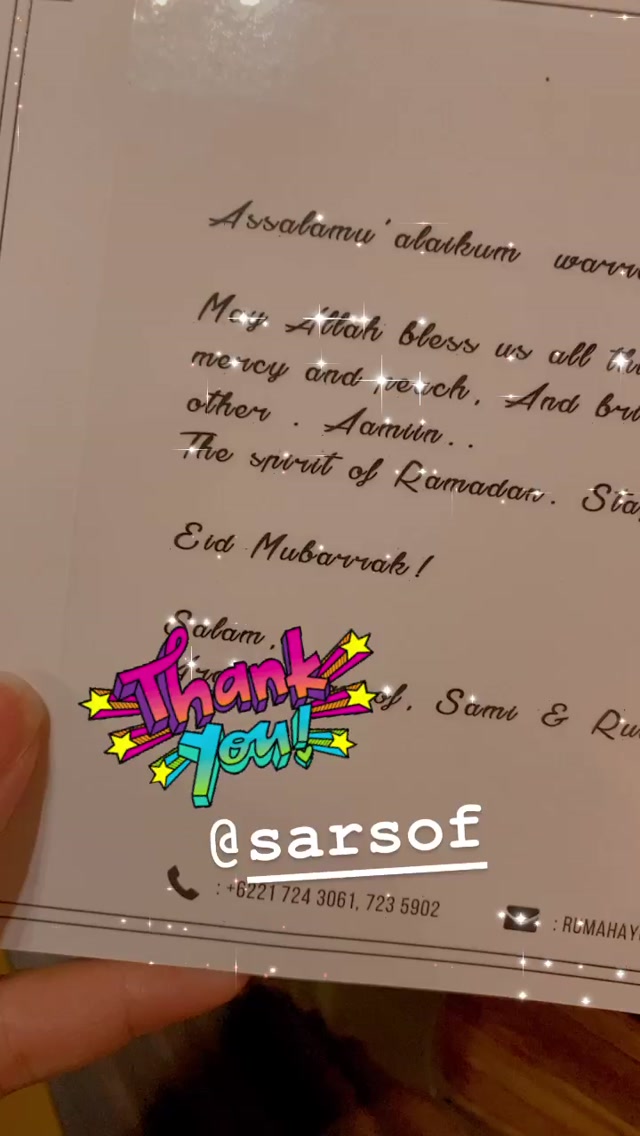 Assalamu'alaikum
May Allah bless us all
mercy and peach, And
other . Aamiin..
The spirit of Ramadan.
Eid Mubarrak!
Salam,
Sami &
Thank
You!
@sarsof
: +6221 724 3061, 723 5902